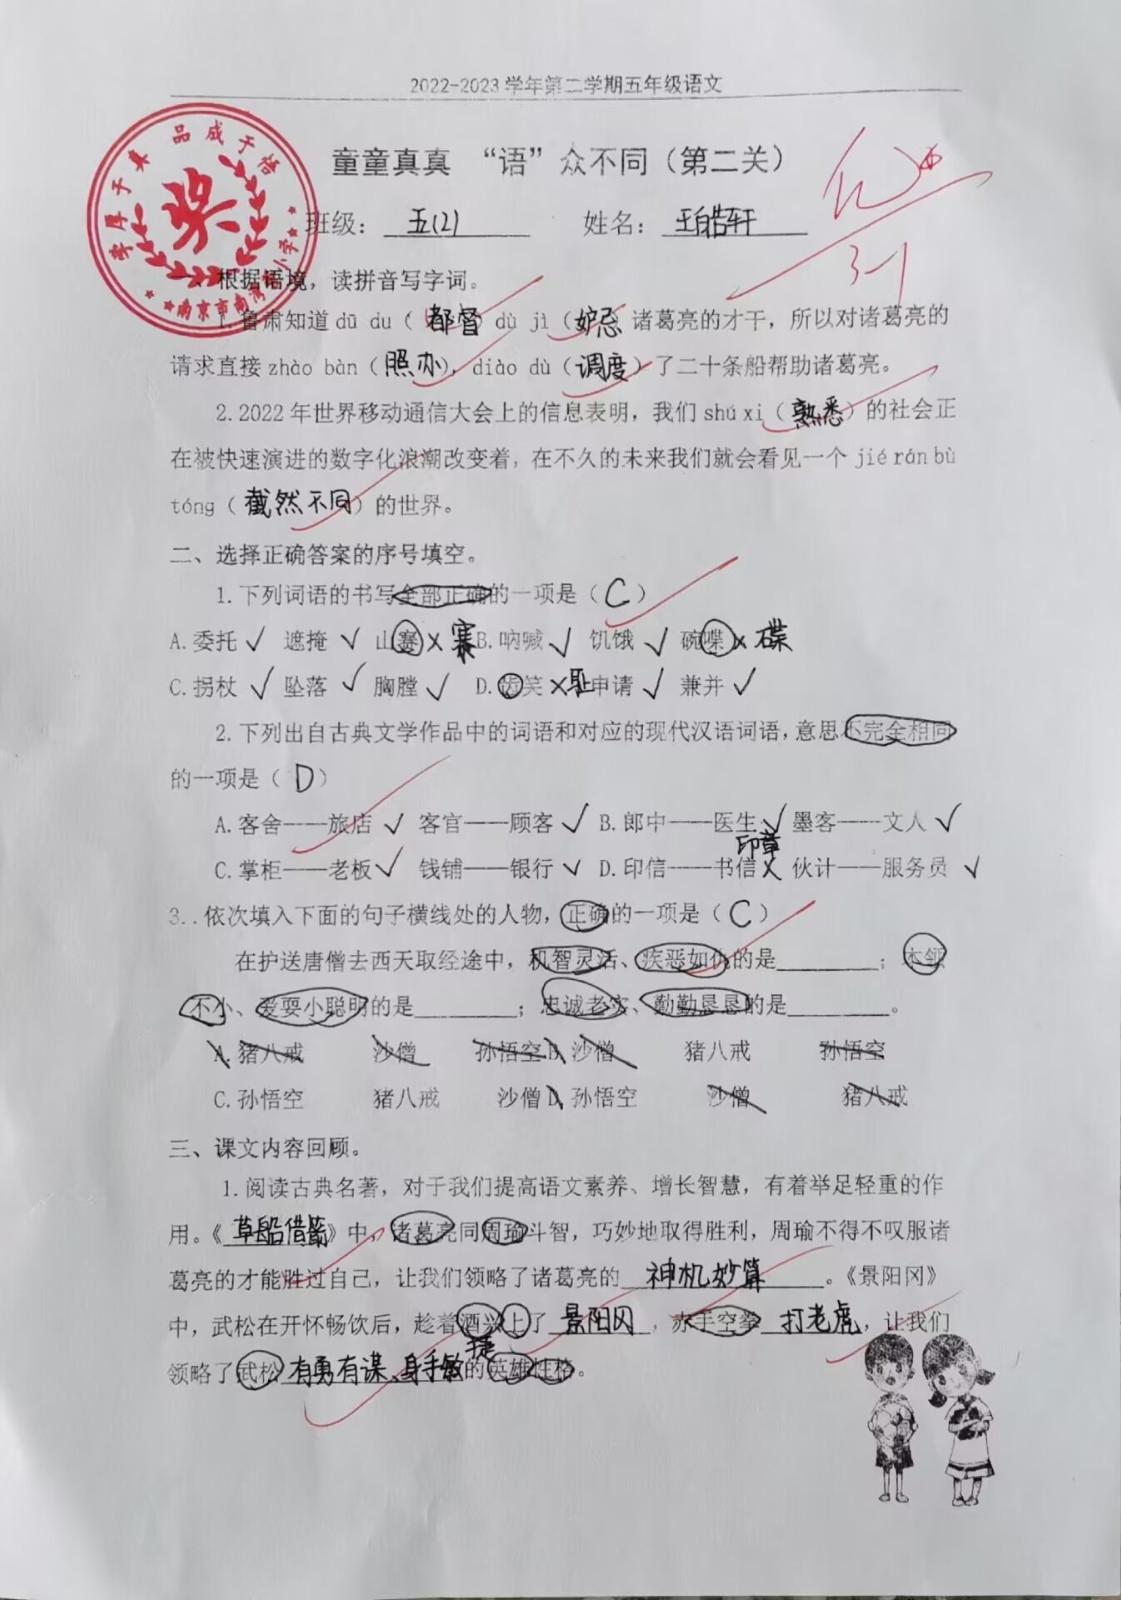 2022-2023 学年第二学期五年级语文
童童真真 “语”众不同（第二关）
学厚于真 品成于悟
奖
班级：五(2) 姓名：王皓轩
一、根据语境，读拼音写字词。
1.鲁肃知道 dū du（都督）dù jì（妒忌）诸葛亮的才干，所以对诸葛亮的
请求直接 zhào bàn（照办），diào dù（调度）了二十条船帮助诸葛亮。
2.2022 年世界移动通信大会上的信息表明，我们 shú xi（熟悉）的社会正
在被快速演进的数字化浪潮改变着，在不久的未来我们就会看见一个 jié rán bù
tóng（截然不同）的世界。
二、选择正确答案的序号填空。
1.下列词语的书写全部正确的一项是（C）
A.委托✓ 遮掩✓ 山赛×寨 B.呐喊✓ 饥饿✓ 碗喋×碟
C.拐杖✓ 坠落✓ 胸膛✓ D.齿笑×耻 申请✓ 兼并✓
2.下列出自古典文学作品中的词语和对应的现代汉语词语，意思不完全相同
的一项是（D）
A.客舍——旅店✓ 客官——顾客✓ B.郎中——医生✓ 墨客——文人✓
印章
C.掌柜——老板✓ 钱铺——银行✓ D.印信——书信× 伙计——服务员✓
3..依次填入下面的句子横线处的人物，正确的一项是（C）
在护送唐僧去西天取经途中，机智灵活、疾恶如仇的是________；本领
不小、爱耍小聪明的是________；忠诚老实、勤勤恳恳的是________。
A.猪八戒 沙僧 孙悟空 B.沙僧 猪八戒 孙悟空
C.孙悟空 猪八戒 沙僧 D.孙悟空 沙僧 猪八戒
三、课文内容回顾。
1.阅读古典名著，对于我们提高语文素养、增长智慧，有着举足轻重的作
用。《草船借箭》中，诸葛亮同周瑜斗智，巧妙地取得胜利，周瑜不得不叹服诸
葛亮的才能胜过自己，让我们领略了诸葛亮的 神机妙算 。《景阳冈》
中，武松在开怀畅饮后，趁着酒兴上了 景阳冈 ，赤手空拳 打老虎，让我们
领略了武松 有勇有谋、身手敏捷的英雄性格。